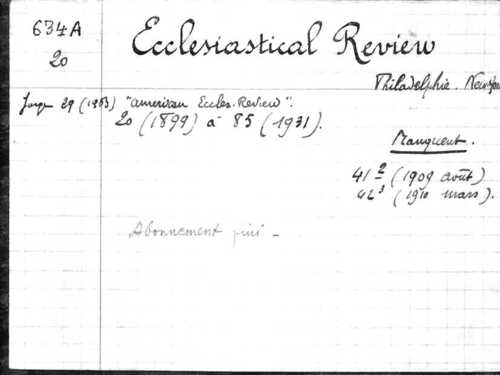 634A
20
Ecclesiastical Review
Philadelphie. New
Jusqu' 29 (1903) "American Eccles. Review".
20 (1899) à 85 (1931).
Manquent.
41² (1909 août)
42³ (1910 mars).
Abonnement fini -